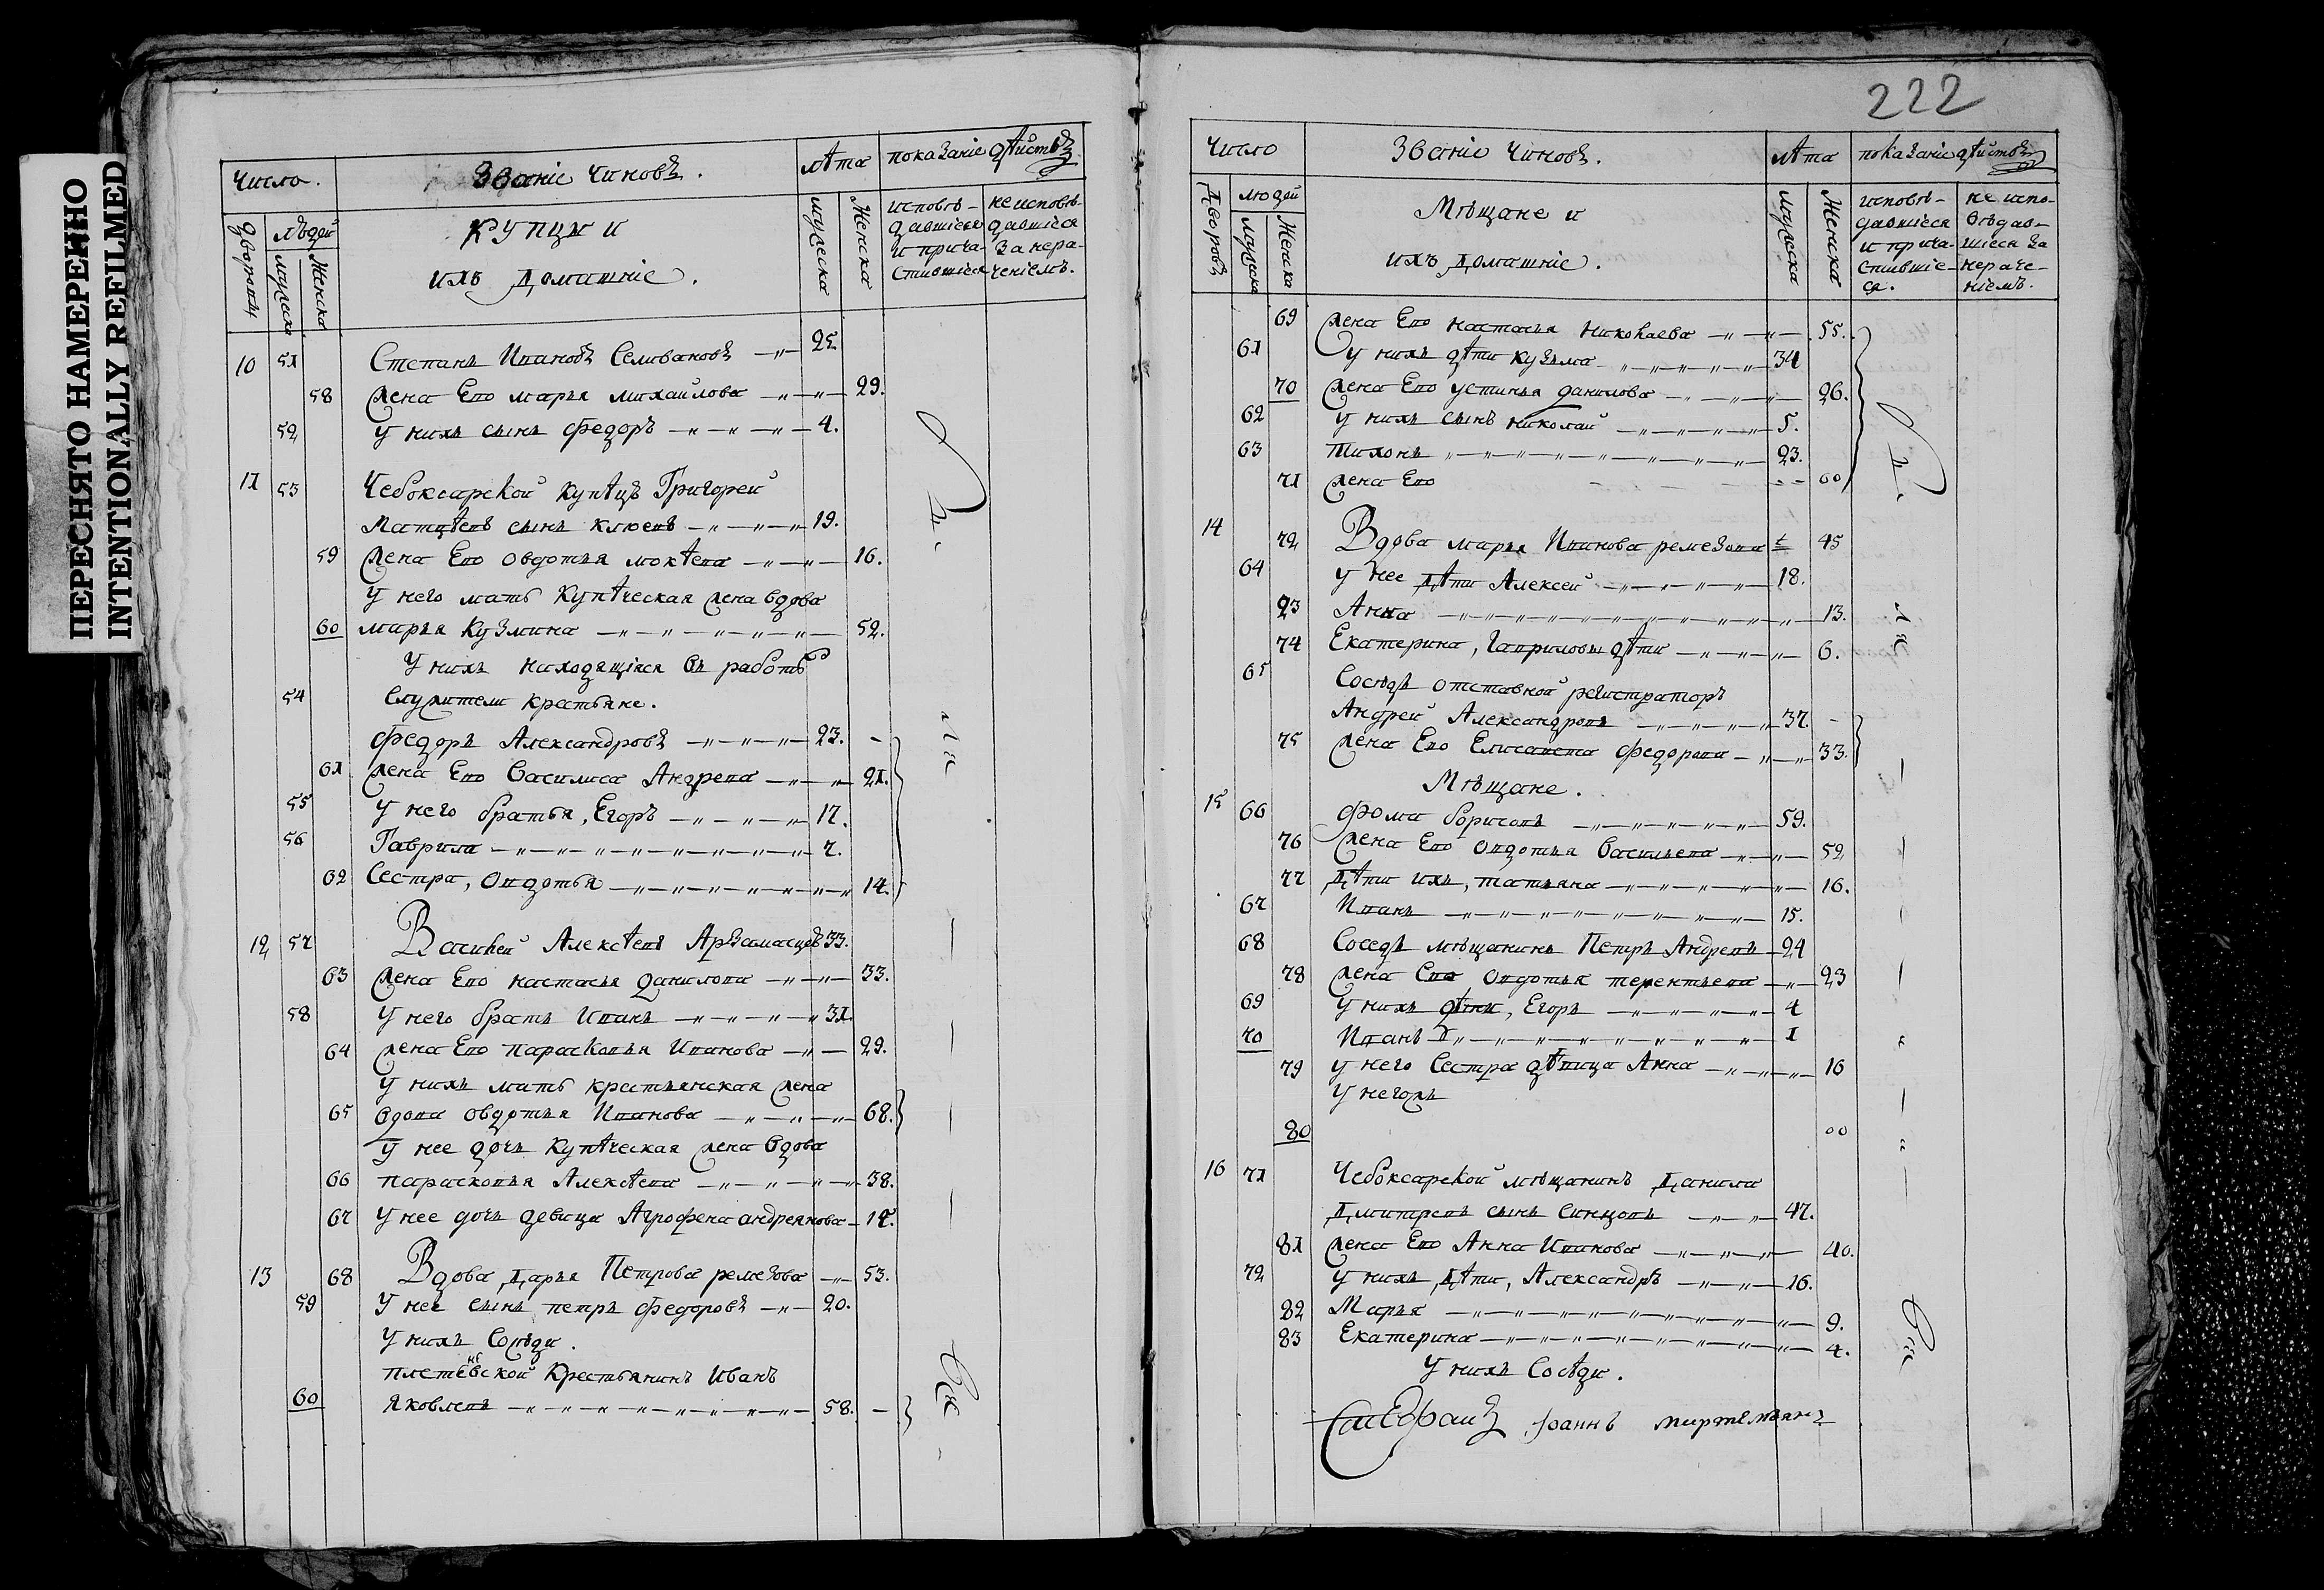 ПЕРЕСНЯТО НАМЕРЕННО
INTENTIONALLY REFILMED
Число. Званіе чиновъ. лѣта показаніе дѣйствъ
дворовъ людей мужеска женска
купцы и
ихъ домашніе.
мужеска женска
исповѣ-
давшіеся
и прича-
стившіеся
неисповѣ-
давшіеся
за нера-
ченіемъ.
10 51 Степанъ Ивановъ Селивановъ 25.
58 жена Его марья михаилова 29.
52 у нихъ сынъ федоръ 4.
11 53 Чебоксарской купѣцъ Григорей
Матвѣевъ сынъ клюевъ 19.
59 жена Его овдотья мокѣева 16.
у него мать купѣческая жена вдова
60 марья кузмина 52.
У нихъ находящіяся въ работѣ
54 служители крестьяне.
федоръ Александровъ 23. -
61 жена Его василиса Андрева 21.
55 у него братья, Егоръ 17.
56 Гаврила 7.
62 Сестра, Овдотья 14.
12 57 Василей Алексѣевъ Арзамасцовъ 33.
63 жена Его настасья данилова 33.
58 у него братъ Иванъ 31.
64 жена Его парасковья Иванова 29.
у нихъ мать крестьянская жена
65 вдова овдотья Иванова 68.
у нее дочь купѣческая жена вдова
66 парасковья Алексѣева 38.
67 у нее дочь девица Агрофена андреянова 17.
13 68 Вдова, дарья Петрова ремезова 53.
59 У неё сынъ петръ федоровъ 20.
у нихъ Сосѣди.
крестьянинъ иванъ
60 яковлевъ 58. -
222
Число Званіе чиновъ. лѣта показаніе дѣйствъ
дворовъ людей мужеска женска
Мѣщане и
ихъ домашніе.
мужеска женска
исповѣ-
давшіеся
и прича-
стившіе-
ся.
не испо-
вѣдав-
шіеся за
нераче-
ніемъ.
69 жена Его настасья николаева 55.
61 у нихъ дѣти кузьма 34
70 жена Его устинья данилова 26.
62 у нихъ сынъ николай 5.
63 тихонъ 23.
71 жена Его 00
14 72 Вдова марья Иванова ремезова 45
64 у нее дѣти Алексей 18.
23 Анна 13.
74 Екатерина, Гавриловы дѣти 6.
65 Сосѣдъ отставной регистраторъ
Андрей Александровъ 37. -
75 жена Его Елисавета федорова 33.
Мѣщане.
15 66 фома борисовъ 59.
76 жена Его овдотья васильева 52
77 дѣти ихъ, татьяна 16.
67 Иванъ 15.
68 Соседъ мѣщанинъ Петръ Андревъ 24
78 жена Его Овдотья терентьева 23
69 у нихъ дѣти, Егоръ 4
70 Иванъ 1
79 у него Сестра дѣвица Анна 16
у негожъ
80 00
16 71 Чебоксарской мѣщанинъ данила
дмитревъ сынъ синцовъ 47.
81 жена Его Анна Иванова 40.
72 у нихъ дѣти, Александръ 16.
82 Марья 9.
83 Екатерина 4.
у нихъ Сосѣди.
Іоаннъ